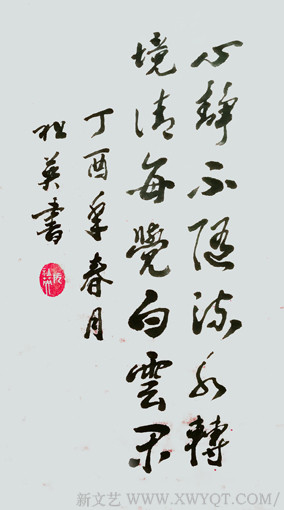 心靜不隨流水轉
境清每覺白雲閑
丁酉年春月
英書
新文艺 WWW.XWYQT.COM/